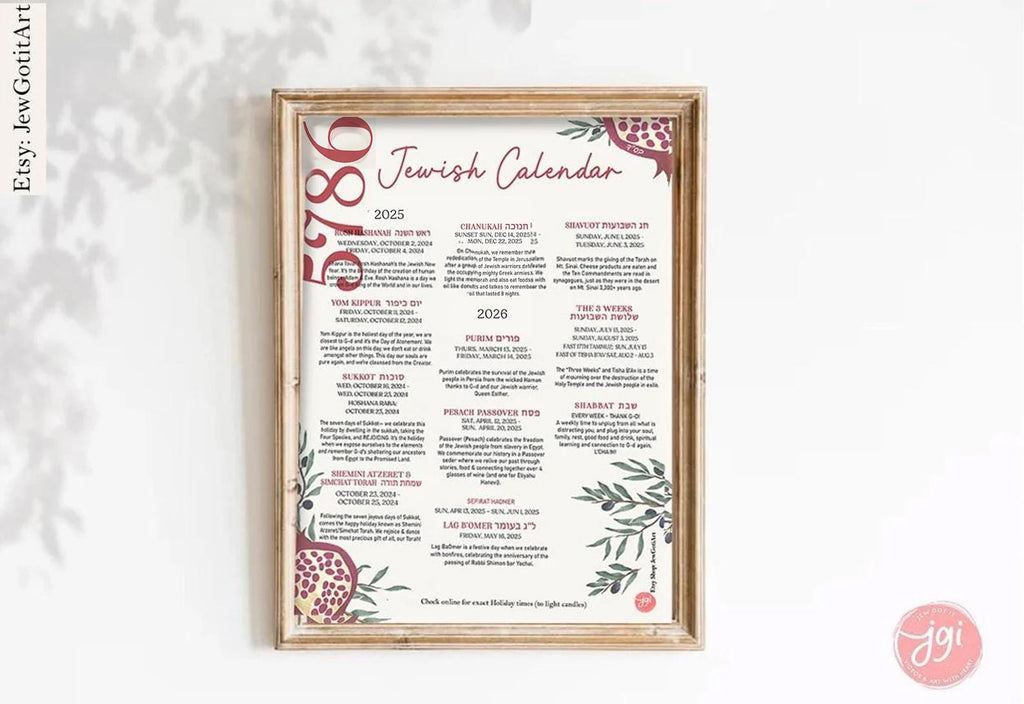 Etsy: JewGotitArt
5786
Jewish Calendar
2025
ROSH HASHANAH ראש השנה
WEDNESDAY, OCTOBER 2, 2024
FRIDAY, OCTOBER 4, 2024
Rosh Hashanah's the Jewish New
Year. It's the birthday of the creation of human
Eve. Rosh Hashana is a day we
of the World and in our lives.
YOM KIPPUR יום כיפור
FRIDAY, OCTOBER 11, 2024 -
SATURDAY, OCTOBER 12, 2024
Yom Kippur is the holiest day of the year, we are
closest to G-d and it's the Day of Atonement. We
are like angels on this day, we don't eat or drink
amongst other things. This day our souls are
pure again, and we're cleansed from the Creator.
SUKKOT סוכות
WED, OCTOBER 16, 2024 -
WED, OCTOBER 23, 2024
HOSHANA RABA:
OCTOBER 23, 2024
The seven days of Sukkot— we celebrate this
holiday by dwelling in the sukkah, taking the
Four Species, and REJOICING. It's the holiday
when we expose ourselves to the elements
and remember G-d's sheltering our ancestors
from Egypt to the Promised Land.
SHEMINI ATZERET &
SIMCHAT TORAH שמחת תורה
OCTOBER 23, 2024 -
OCTOBER 25, 2024
Following the seven joyous days of Sukkot,
comes the happy holiday known as Shemini
Atzeret/Simchat Torah. We rejoice & dance
with the most precious gift of all, our Torah!
CHANUKAH חנוכה
SUNSET SUN, DEC 14, 2025
MON, DEC 22, 2025
On Chanukah, we remember the
rededication of the Temple in Jerusalem
after a group of Jewish warriors defeated
the occupying mighty Greek armies. We
light the menorah and also eat foods with
oil like donuts and latkes to remember the
oil that lasted 8 nights.
2026
PURIM פורים
THURS, MARCH 13, 2025 -
FRIDAY, MARCH 14, 2025
Purim celebrates the survival of the Jewish
people in Persia from the wicked Haman
thanks to G-d and our Jewish warrior,
Queen Esther.
PESACH PASSOVER פסח
SAT, APRIL 12, 2025 -
SUN, APRIL 20, 2025
Passover (Pesach) celebrates the freedom
of the Jewish people from slavery in Egypt.
We commemorate our history in a Passover
seder where we relive our past through
stories, food & connecting together over 4
glasses of wine (and one for Eliyahu
Hanavi).
SEFIRAT HAOMER
SUN, APR 13, 2025 - SUN, JUN 1, 2025
LAG B'OMER ל"ג בעומר
FRIDAY, MAY 16, 2025
Lag BaOmer is a festive day when we celebrate
with bonfires, celebrating the anniversary of the
passing of Rabbi Shimon bar Yochai.
SHAVUOT חג השבועות
SUNDAY, JUNE 1, 2025 -
TUESDAY, JUNE 3, 2025
Shavuot marks the giving of the Torah on
Mt. Sinai. Cheese products are eaten and
the Ten Commandments are read in
synagogues, just as they were in the desert
on Mt. Sinai 3,300+ years ago.
THE 3 WEEKS
שלושת השבועות
SUNDAY, JULY 13, 2025 -
SUNDAY, AUGUST 3, 2025
FAST 17TH TAMMUZ: SUN, JULY 13
FAST OF TISHA B'AV SAT, AUG 2 - AUG 3
The "Three Weeks" and Tisha B'Av is a time
of mourning over the destruction of the
Holy Temple and the Jewish people in exile.
SHABBAT שבת
EVERY WEEK - THANK G-D!
A weekly time to unplug from all what is
distracting you, and plug into your soul,
family, rest, good food and drink, spiritual
learning and connection to G-d again.
L'CHAIM!
Check online for exact Holiday times (to light candles)
Etsy Shop JewGotitArt
jgi
JEW GOT IT
jgi
ART WITH HEART